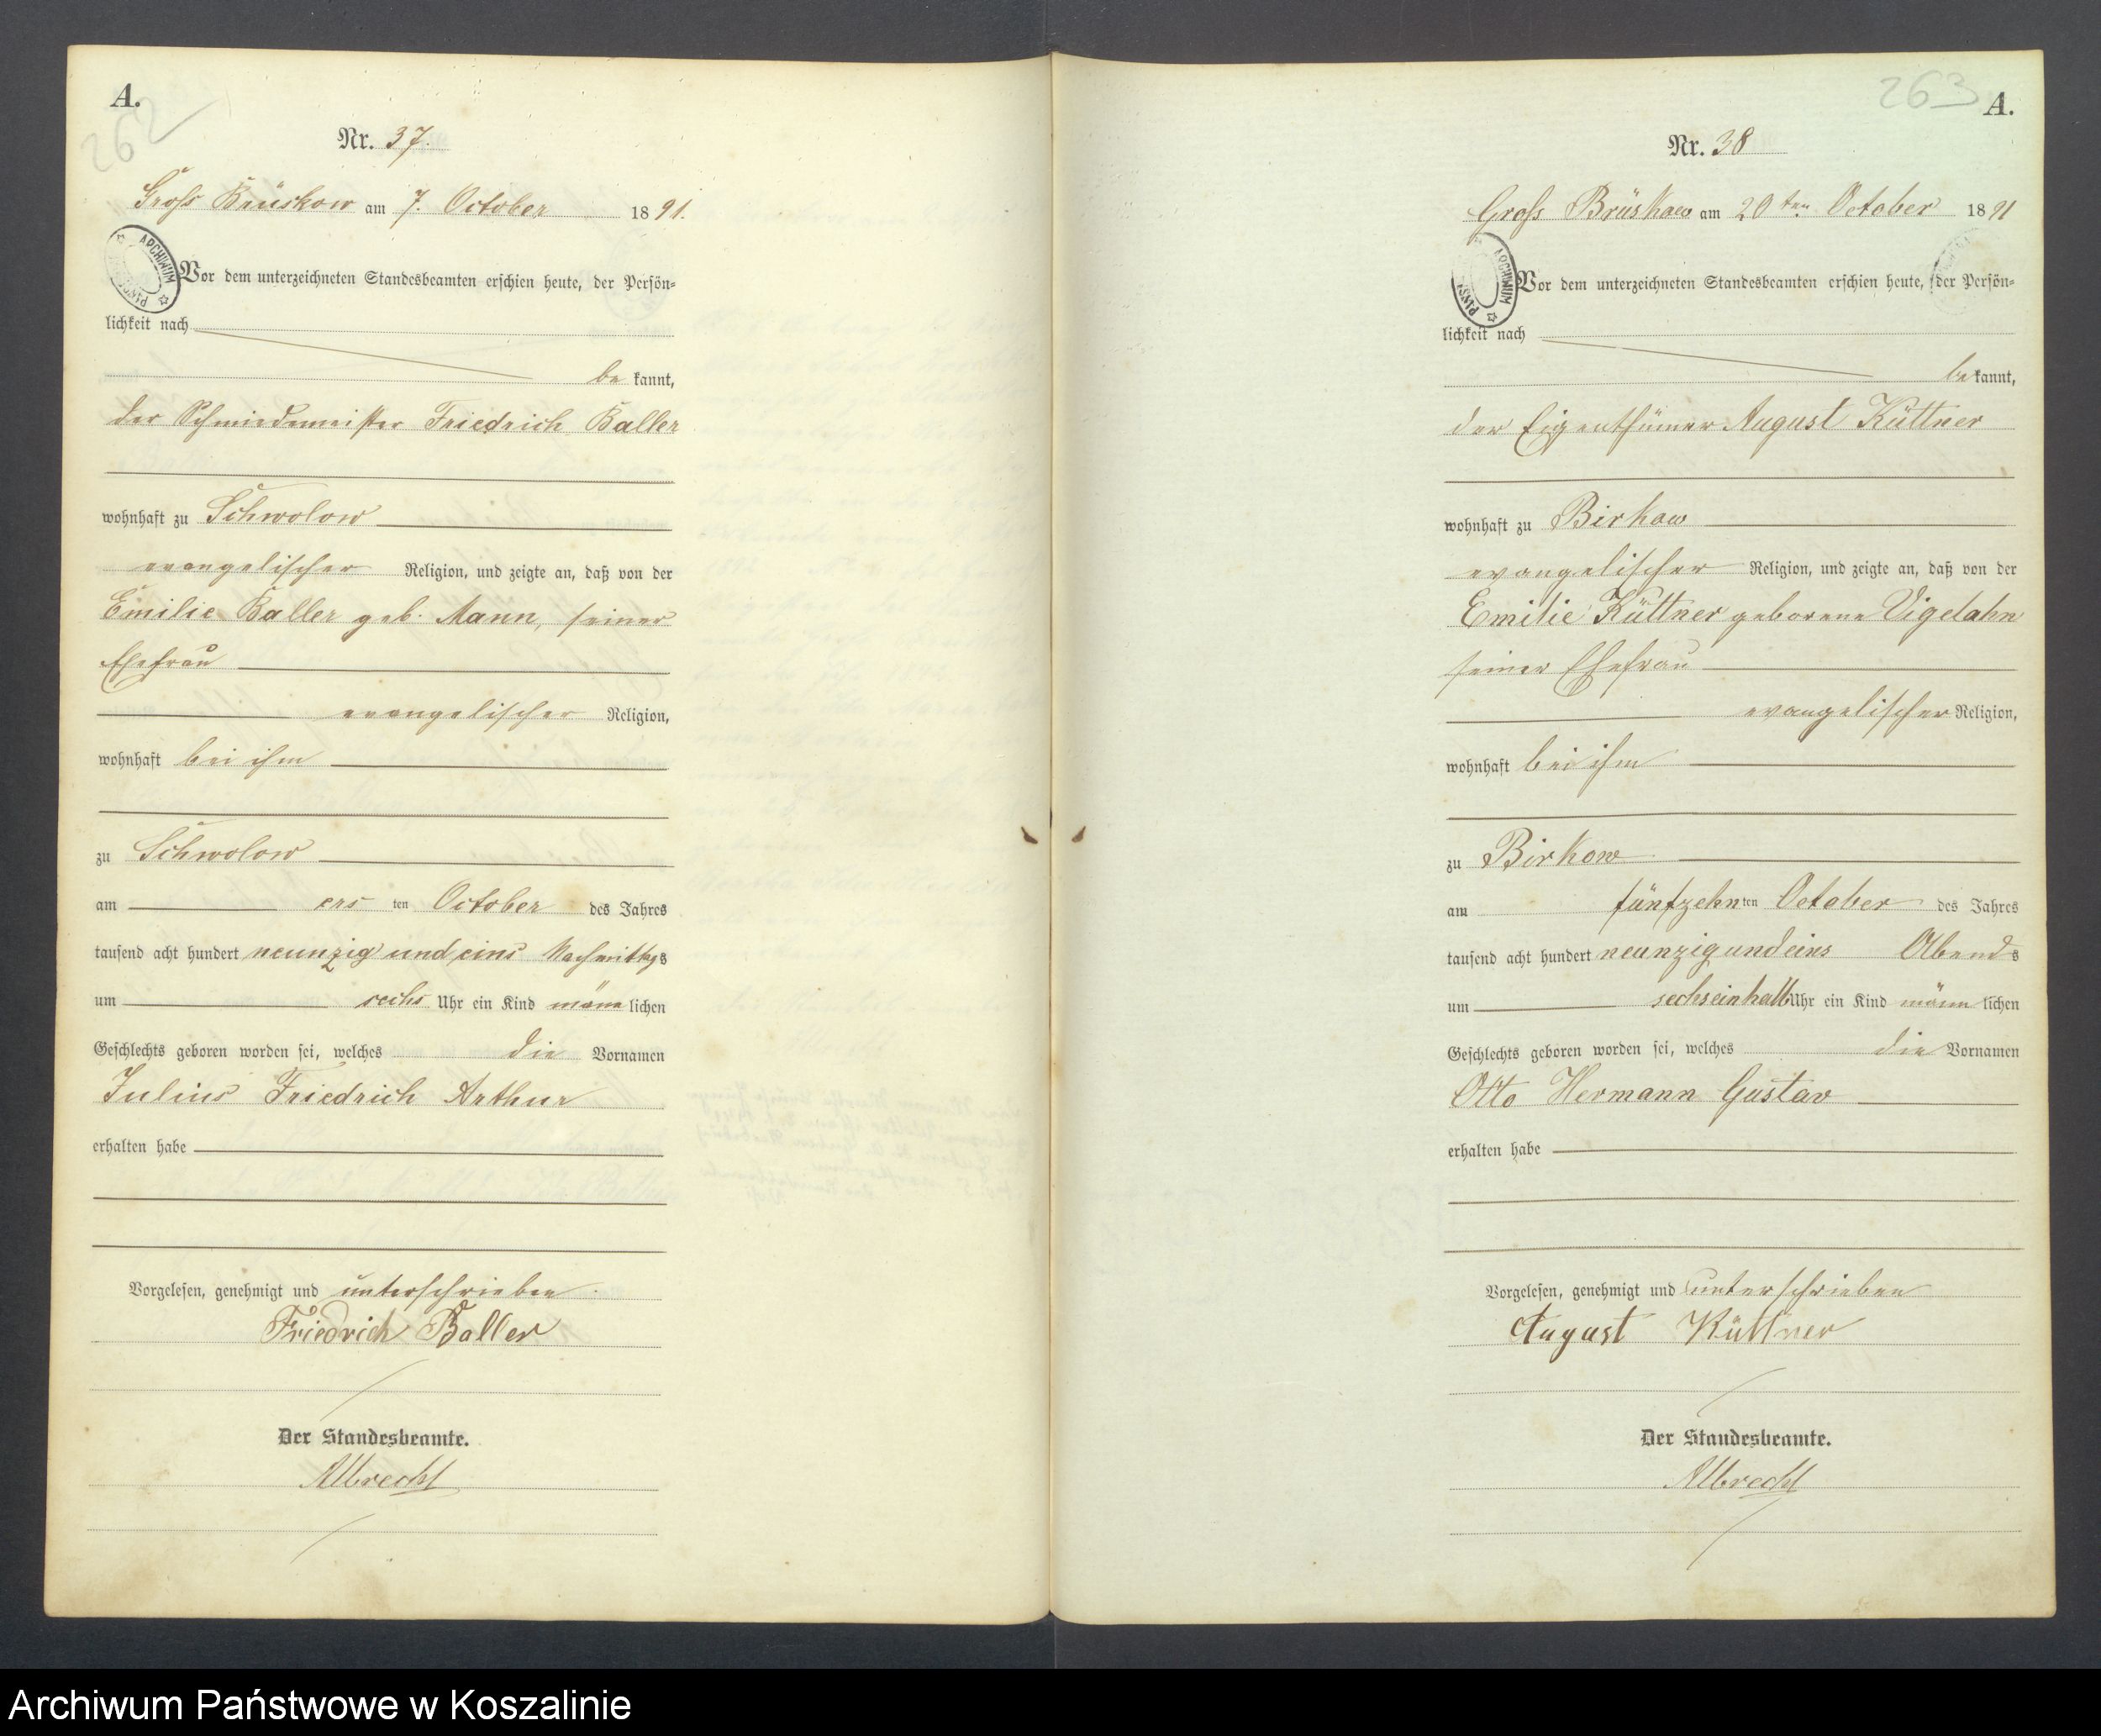 A.
262
Nr. 37.
Gross Brüskow am 7. October 1891.
Vor dem unterzeichneten Standesbeamten erschien heute, der Persön-
lichkeit nach
be kannt,
der Schmiedemeister Friedrich Baller
wohnhaft zu Schwolow
evangelischer Religion, und zeigte an, daß von der
Emilie Baller geb. Mann, seiner
Ehefrau
evangelischer Religion,
wohnhaft bei ihm
zu Schwolow
am ers ten October des Jahres
tausend acht hundert neunzig und eins Nachmittags
um sechs Uhr ein Kind männlichen
Geschlechts geboren worden sei, welches die Vornamen
Julius Friedrich Arthur
erhalten habe
Vorgelesen, genehmigt und unterschrieben
Friedrich Baller
Der Standesbeamte.
Albrecht
263
A.
Nr. 38
Gross Brüskow am 20ten October 1891
Vor dem unterzeichneten Standesbeamten erschien heute, der Persön-
lichkeit nach
bekannt,
der Eigenthümer August Küttner
wohnhaft zu Birkow
evangelischer Religion, und zeigte an, daß von der
Emilie Küttner geborene Vigelahn
seiner Ehefrau
evangelischer Religion,
wohnhaft bei ihm
zu Birkow
am fünfzehnten October des Jahres
tausend acht hundert neunzig und eins Abends
um sechseinhalb Uhr ein Kind männlichen
Geschlechts geboren worden sei, welches die Vornamen
Otto Hermann Gustav
erhalten habe
Vorgelesen, genehmigt und unterschrieben
August Küttner
Der Standesbeamte.
Albrecht
Archiwum Państwowe w Koszalinie